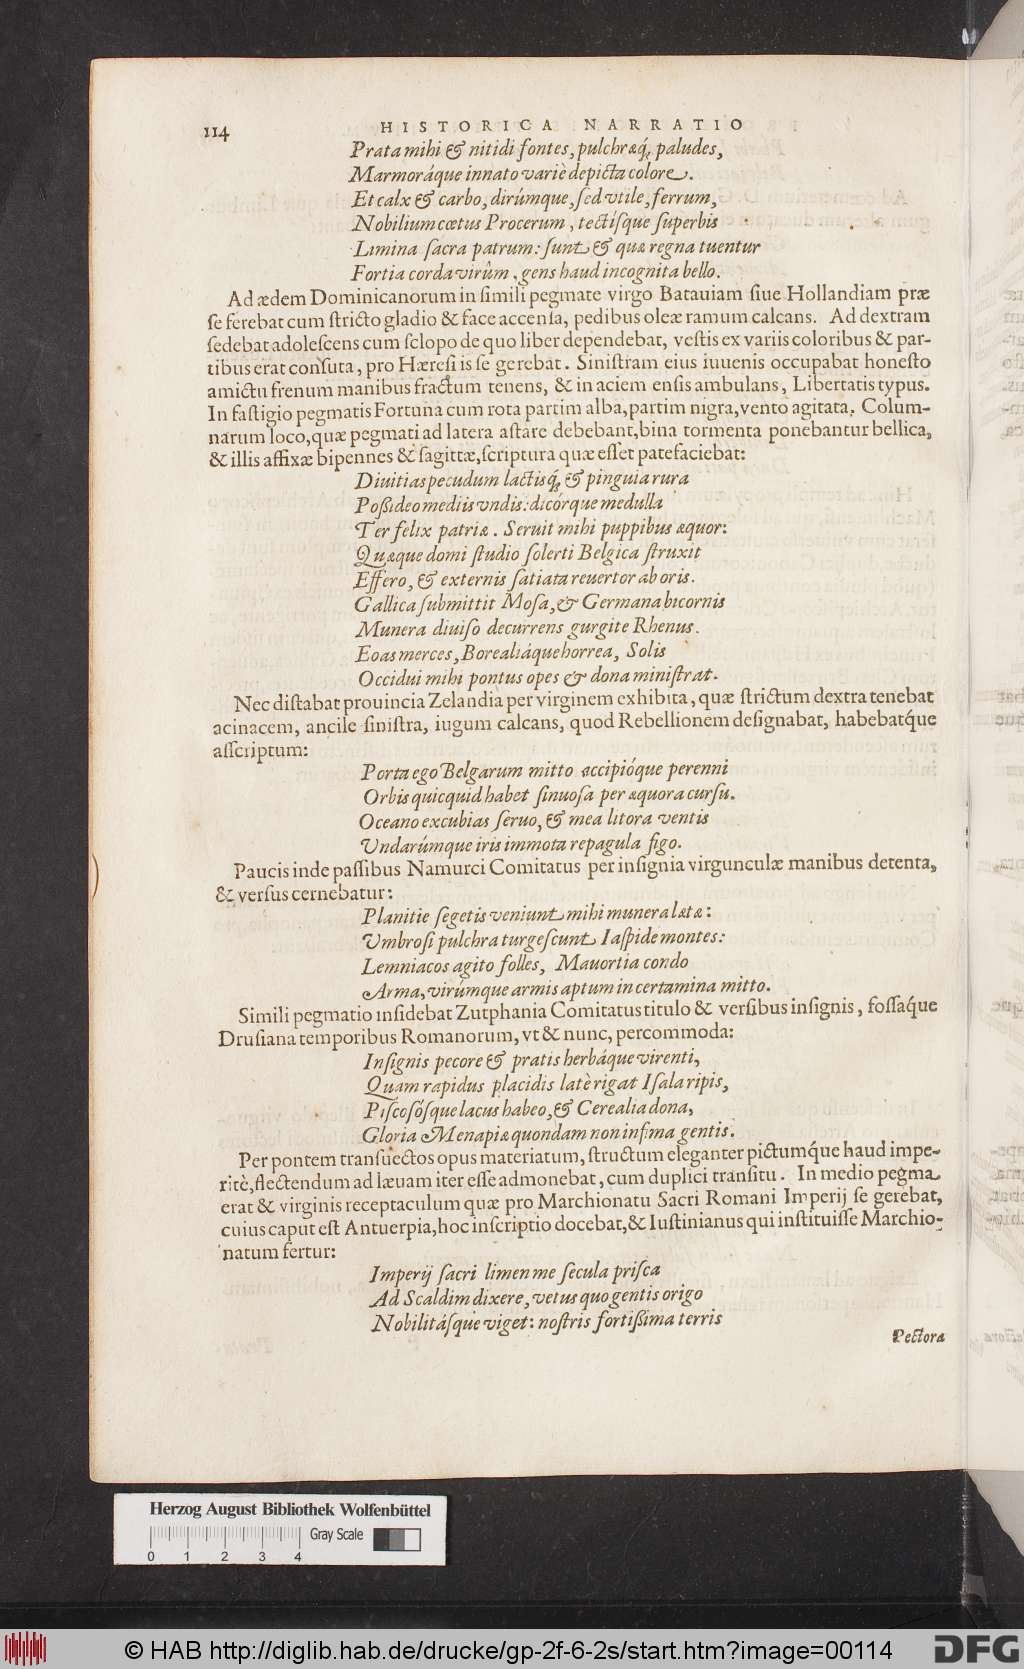 114
HISTORICA NARRATIO
Prata mihi & nitidi fontes, pulchræq́; paludes,
Marmoráque innato variè depicta colore.
Et calx & carbo, dirúmque, ſed vtile, ferrum,
Nobilium cœtus Procerum, tectíſque ſuperbis
Limina ſacra patrum: ſunt & quæ regna tuentur
Fortia corda virûm, gens haud incognita bello.
Ad ædem Dominicanorum in ſimili pegmate virgo Batauiam ſiue Hollandiam præ
ſe ferebat cum ſtricto gladio & face accenſa, pedibus oleæ ramum calcans. Ad dextram
ſedebat adoleſcens cum ſclopo de quo liber dependebat, veſtis ex variis coloribus & par-
tibus erat conſuta, pro Hæreſi is ſe gerebat. Siniſtram eius iuuenis occupabat honeſto
amictu frenum manibus fractum tenens, & in aciem enſis ambulans, Libertatis typus.
In faſtigio pegmatis Fortuna cum rota partim alba, partim nigra, vento agitata. Colum-
narum loco, quæ pegmati ad latera aſtare debebant, bina tormenta ponebantur bellica,
& illis affixæ bipennes & ſagittæ, ſcriptura quæ eſſet patefaciebat:
Diuitias pecudum lactisq́; & pinguia rura
Poßideo mediis vndis: dicórque medulla
Ter felix patriæ. Seruit mihi puppibus æquor:
Quæque domi ſtudio ſolerti Belgica ſtruxit
Effero, & externis ſatiata reuertor ab oris.
Gallica ſubmittit Moſa, & Germana bicornis
Munera diuiſo decurrens gurgite Rhenus.
Eoas merces, Borealiáque horrea, Solis
Occidui mihi pontus opes & dona miniſtrat.
Nec diſtabat prouincia Zelandia per virginem exhibita, quæ ſtrictum dextra tenebat
acinacem, ancile ſiniſtra, iugum calcans, quod Rebellionem deſignabat, habebatq́ue
aſſcriptum:
Porta ego Belgarum mitto accipióque perenni
Orbis quicquid habet ſinuoſa per æquora curſu.
Oceano excubias ſeruo, & mea litora ventis
Vndarúmque iris immota repagula figo.
Paucis inde paſſibus Namurci Comitatus per inſignia virgunculæ manibus detenta,
& verſus cernebatur:
Planitie ſegetis veniunt mihi munera lætæ:
Vmbroſi pulchra turgeſcunt Iaſpide montes:
Lemniacos agito folles, Mauortia condo
Arma, virúmque armis aptum in certamina mitto.
Simili pegmatio inſidebat Zutphania Comitatus titulo & verſibus inſignis, foſſaq́ue
Druſiana temporibus Romanorum, vt & nunc, percommoda:
Inſignis pecore & pratis herbáque virenti,
Quam rapidus placidis latè rigat Iſala ripis,
Piſcosóſque lacus habeo, & Cerealia dona,
Gloria Menapiæ quondam non infima gentis.
Per pontem tranſuectos opus materiatum, ſtructum eleganter pictumq́ue haud impe-
ritè, flectendum ad læuam iter eſſe admonebat, cum duplici tranſitu. In medio pegma
erat & virginis receptaculum quæ pro Marchionatu Sacri Romani Imperij ſe gerebat,
cuius caput eſt Antuerpia, hoc inſcriptio docebat, & Iuſtinianus qui inſtituiſſe Marchio-
natum fertur:
Imperij ſacri limen me ſecula priſca
Ad Scaldim dixere, vetus quo gentis origo
Nobilitáſque viget: noſtris fortißima terris
Pectora
Herzog August Bibliothek Wolfenbüttel
Gray Scale
0 1 2 3 4
© HAB http://diglib.hab.de/drucke/gp-2f-6-2s/start.htm?image=00114
DFG